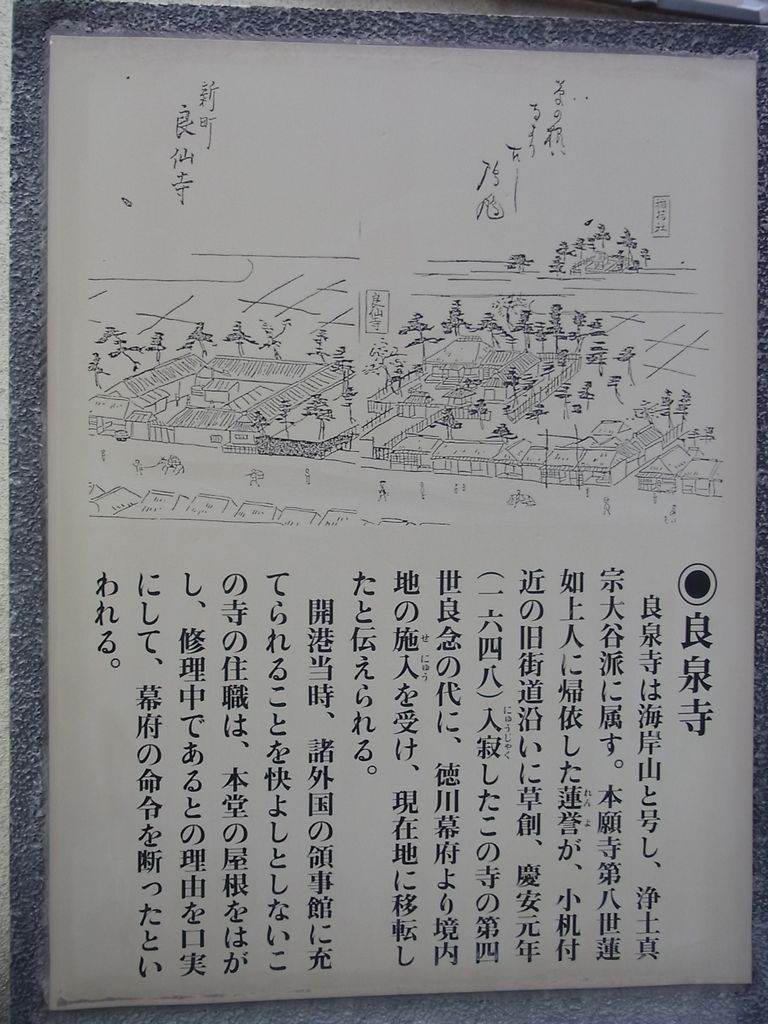 稲荷社
良仙寺
新町
良仙寺
◉良泉寺
良泉寺は海岸山と号し、浄土真
宗大谷派に属す。本願寺第八世蓮
如上人に帰依した蓮誉が、小机付
れんよ
近の旧街道沿いに草創、慶安元年
(一六四八)入寂したこの寺の第四
にゅうじゃく
世良念の代に、徳川幕府より境内
地の施入を受け、現在地に移転し
せにゅう
たと伝えられる。
開港当時、諸外国の領事館に充
てられることを快よしとしないこ
の寺の住職は、本堂の屋根をはが
し、修理中であるとの理由を口実
にして、幕府の命令を断ったとい
われる。